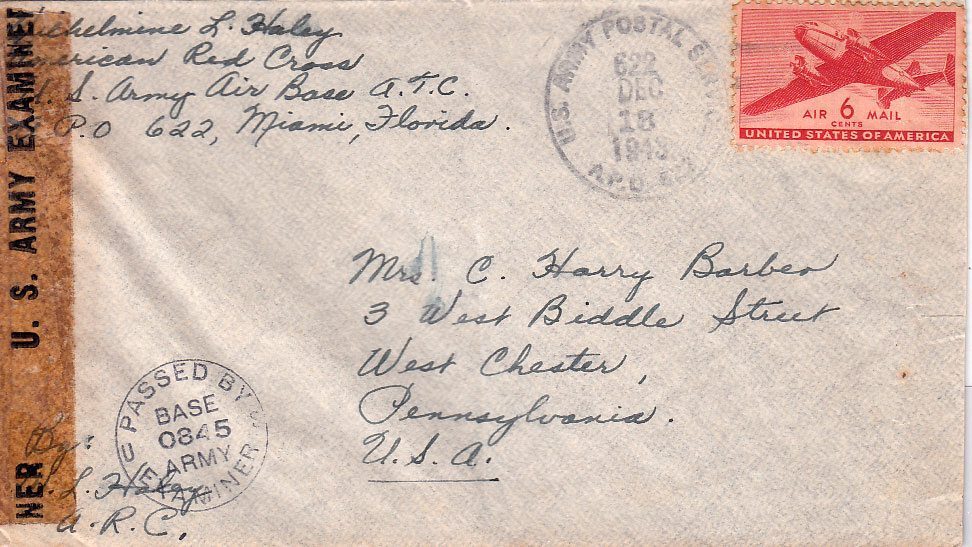 Wilhelmine L. Haley
American Red Cross
U. S. Army Air Base A.T.C.
A.P.O 622, Miami, Florida.
U.S. ARMY POSTAL
622
DEC
18
1943
A.P.O.
AIR 6 MAIL
CENTS
UNITED STATES OF AMERICA
Mrs. C. Harry Barber
3 West Biddle Street
West Chester,
Pennsylvania.
U.S.A.
U. S. ARMY EXAMINER
NER
PASSED BY
BASE
0845
ARMY
EXAMINER
By:
L. Haley
A.R.C.